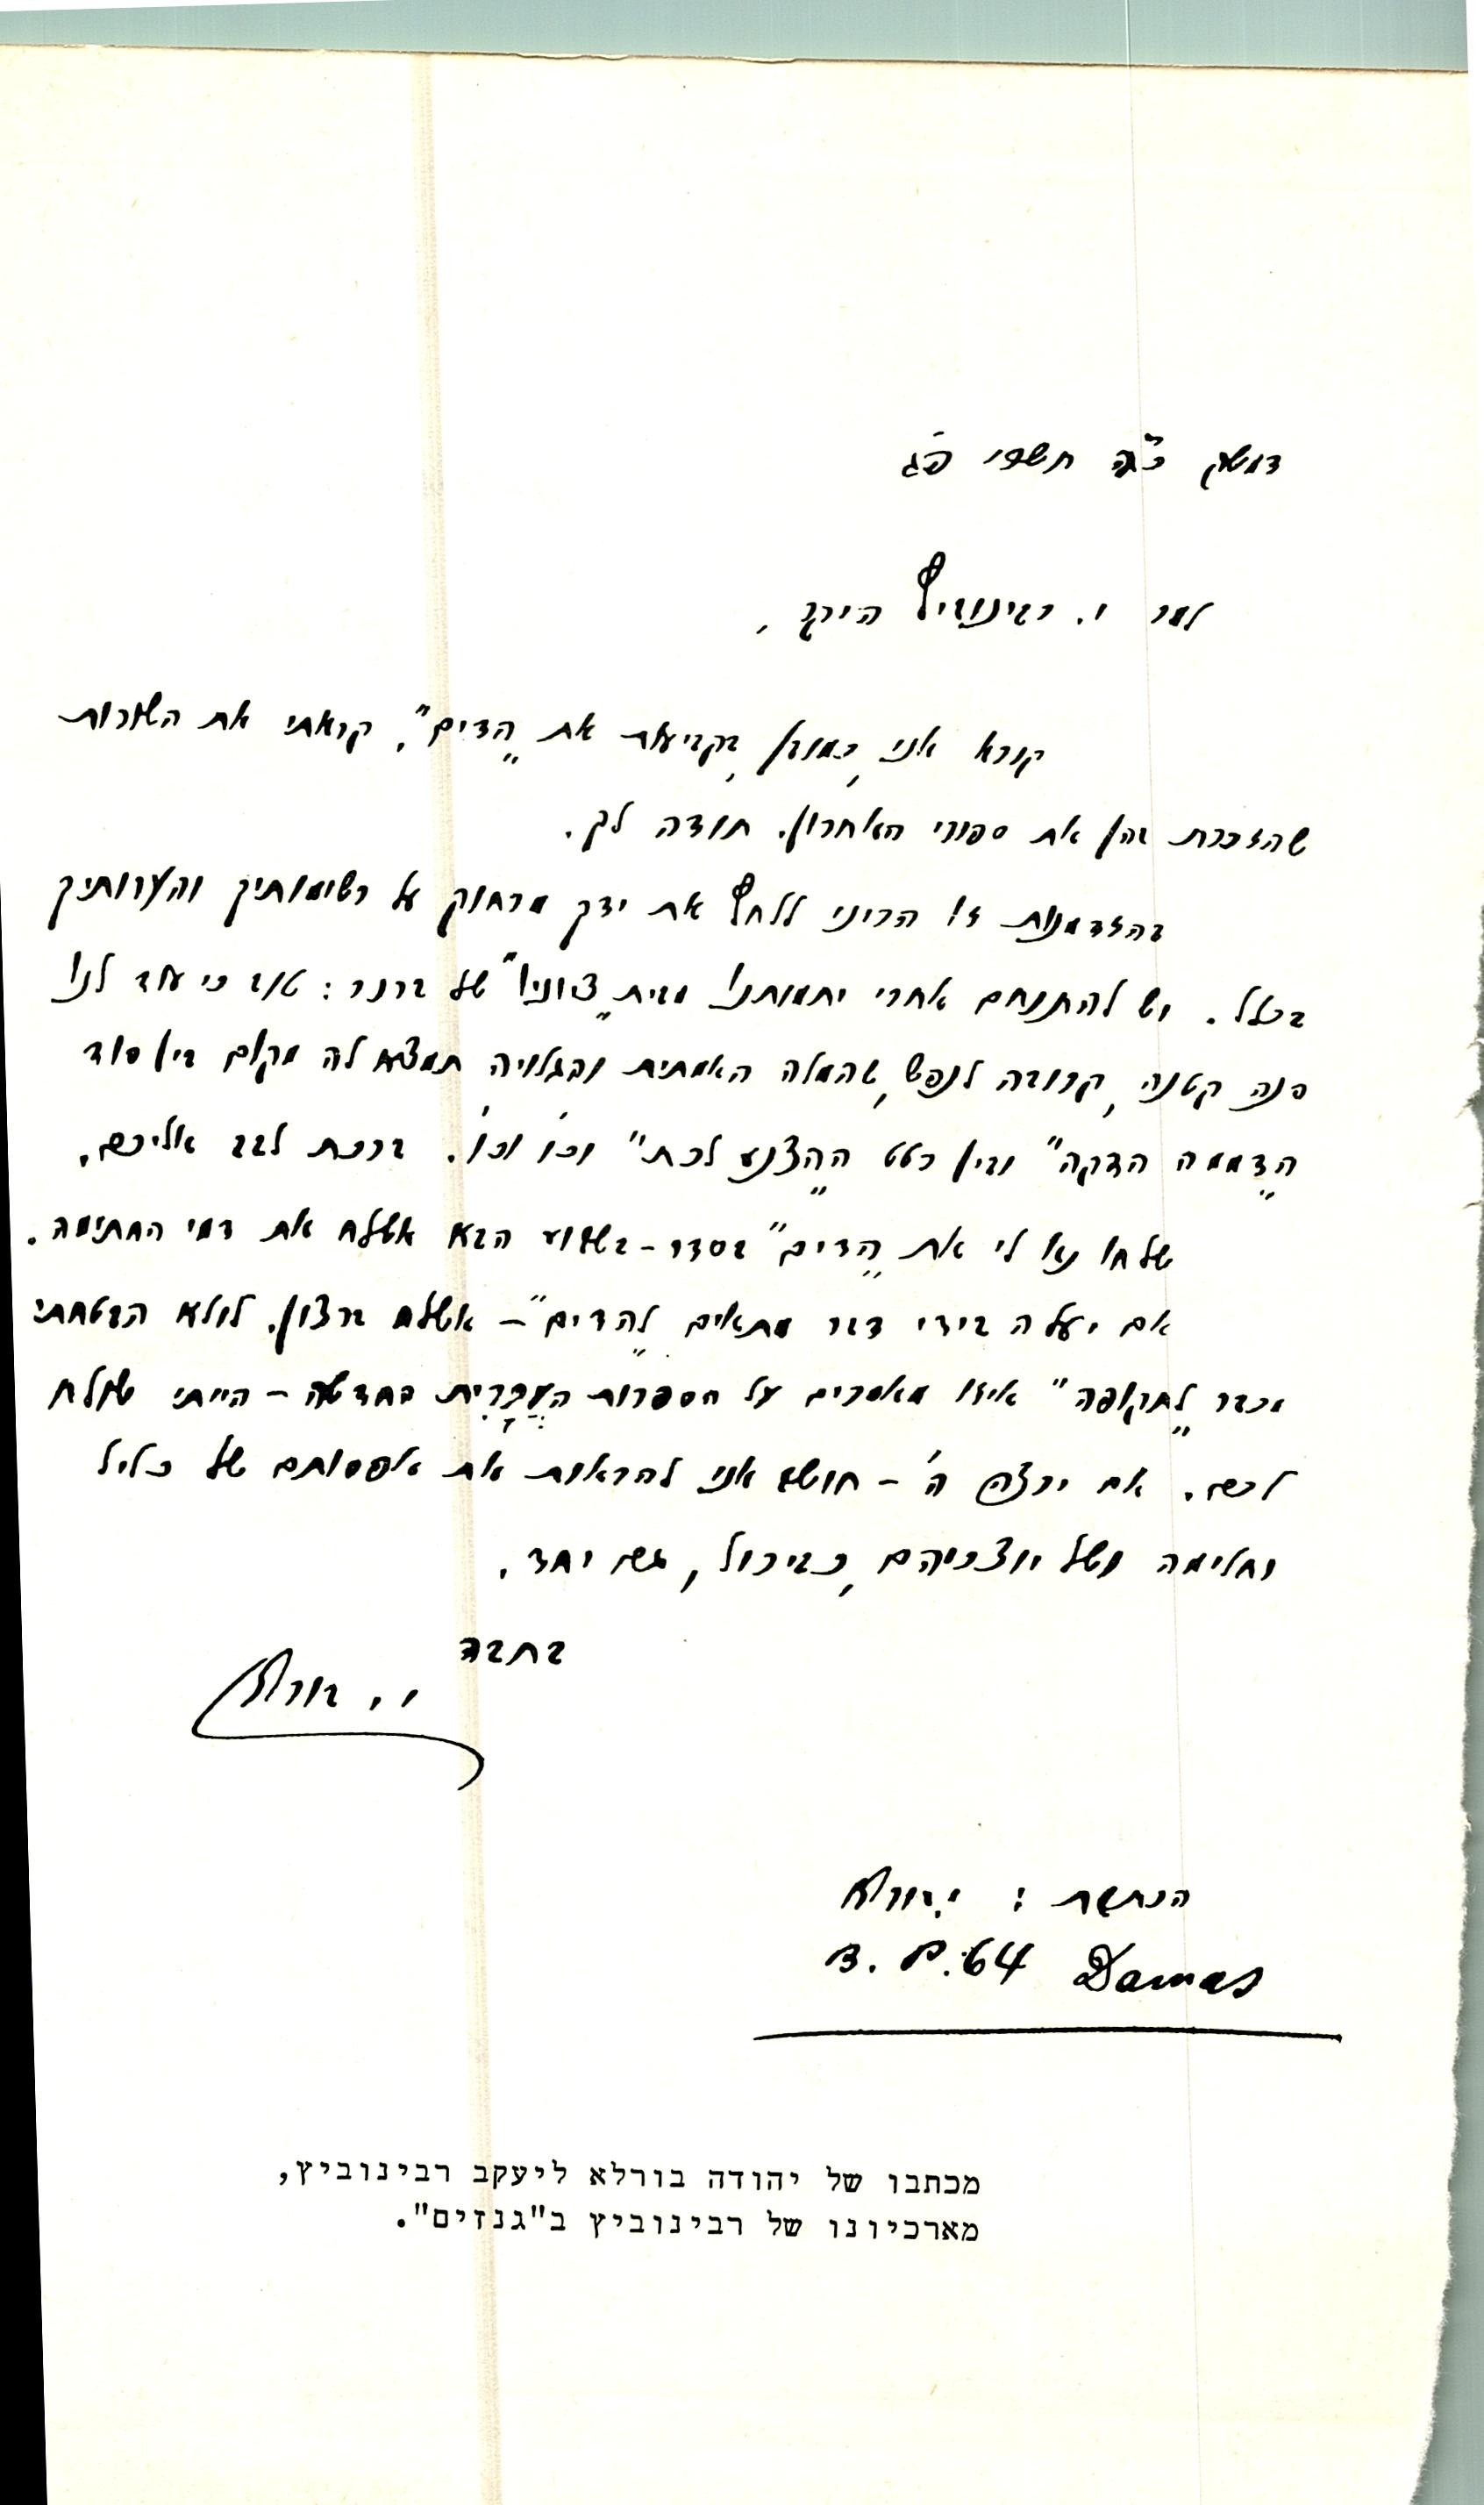 דמשק כ"ה תשרי פ"ג
למר י. רבינוביץ היקר,
קורא אני, כמובן, בקביעות את "הדים". קראתי את השורות
שהזכרת בהן את ספורי האחרון. תודה לך.
בהזדמנות זו הריני ללחוץ את ידך מרחוק על רשימותיך והערותיך
בכלל. יש להתנחם אחרי יתמותנו מבית "ציוניו" של ברנר: טוב כי עוד לנו
פנה קטנה, קרובה לנפש, שהמלה האמתית ובגלויה, תמצא לה מקום בין סוד
"הדממה הדקה" ובין רטט ה"הצנע לכת" וכו' וכו'. ברכת לבב אליכם.
שלחו נא לי את "הדים" בסדר – בשבוע הבא אשלח את דמי החתימה.
אם יעלה בידי דבר מתאים ל"הדים" – אשלח ברצון. לולא הבטחתי
מכבר ל"תקופה" איזו מאמרים על הספרות העֲרָבִית החדשה – הייתי שולח
לכם. אם ירצה ה' – חושב אני להראות את אפסותם של כליל
וחלימה ושל יוצריהם, כביכול, גם יחד.
בחבה
י. בורלא
הכתבת: י. בורלא
B. P. 64 Damas
מכתבו של יהודה בורלא ליעקב רבינוביץ,
מארכיונו של רבינוביץ ב"גנזים".